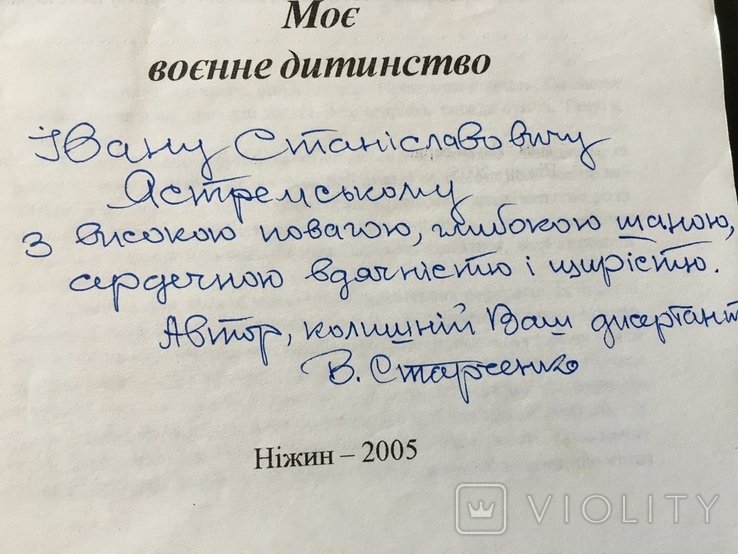 Моє
воєнне дитинство
Івану Станіславовичу
Ястремському
з високою повагою, глибокою шаною,
сердечною вдячністю і щирістю.
Автор, колишній Ваш дисертант
В. Старченко
Ніжин – 2005
VIOLITY